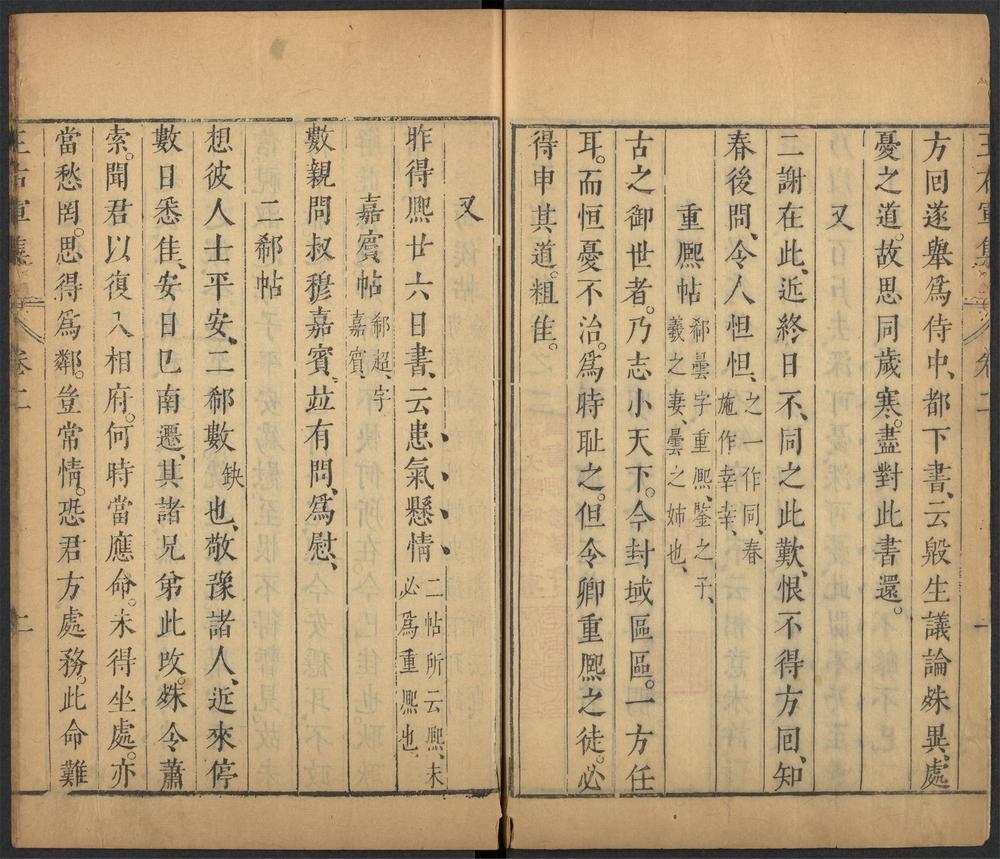 方囘遂舉爲侍中、都下書、云殷生議論殊異、處
憂之道。故思同歲寒。盡對此書還。
又
二謝在此、近終日不、同之此歎、恨不得方囘、知
春後問、令人怛怛、之一作同、春
施作幸幸、
重熈帖
郗曇字重熈、鑒之子、
羲之妻、曇之姊也、
古之御世者。乃志小天下。今封域區區。一方任
耳。而恒憂不治。爲時耻之。但令卿重熈之徒。必
得申其道。粗佳。
又
昨得熈廿六日書、云患氣懸情
二帖所云熈、未
必爲重熈也、
嘉賔帖
郗超、字
嘉賔、
數親問叔穆嘉賔、竝有問、爲慰、
二郗帖
想彼人士平安、二郗數缺也、敬豫諸人、近來停
數日悉佳、安日已南遷、其諸兄弟此攻。殊令蕭
索。聞君以復入相府。何時當應命。未得坐處。亦
當愁罔。思得爲鄰。豈常情。恐君方處務。此命難
王右軍集
卷二
二